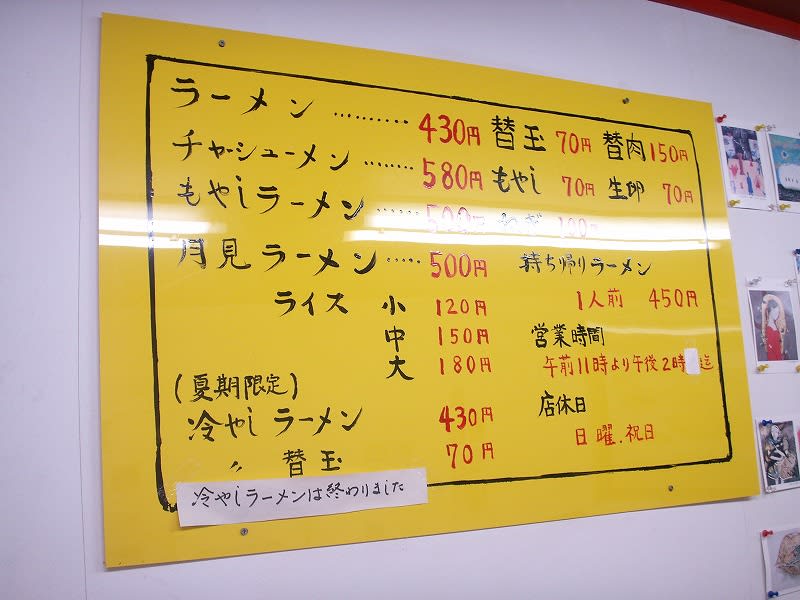 ラーメン ………… 430円
チャーシューメン ……… 580円
もやしラーメン …… 500円
月見ラーメン ····· 500円
ライス 小 120円
中 150円
大 180円
(夏期限定)
冷やしラーメン 430円
〃 替玉 70円
冷やしラーメンは終わりました
替玉 70円 替肉 150円
もやし 70円 生卵 70円
ねぎ 100円
持ち帰りラーメン
1人前 450円
営業時間
午前11時より午後2時 迄
店休日
日曜.祝日